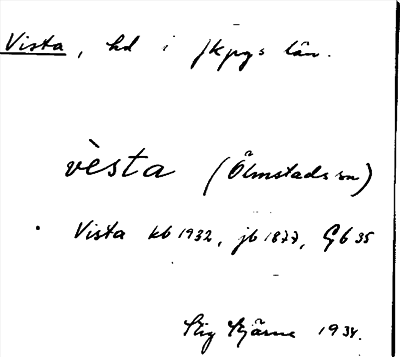 Vista, hd i Jkpgs län.
vèsta (Ölmstads sn)
Vista kb 1932, jb 1877, Gb 35
Stig Bjärme 1934.